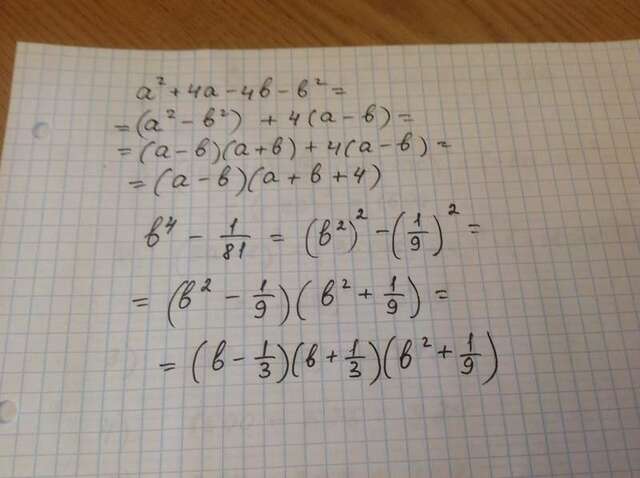 a² + 4a - 4b - b² =
= (a² - b²) + 4(a - b) =
= (a - b)(a + b) + 4(a - b) =
= (a - b)(a + b + 4)
b⁴ - 1/81 = (b²)² - (1/9)² =
= (b² - 1/9)(b² + 1/9) =
= (b - 1/3)(b + 1/3)(b² + 1/9)